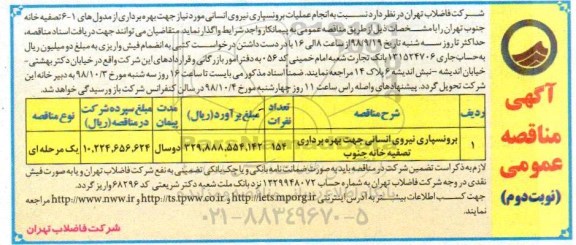 شرکت فاضلاب تهران در نظر دارد نسبت به انجام عملیات برونسپاری نیروی انسانی مورد نیاز جهت بهره برداری از مدول های ۱-۶ تصفیه خانه
جنوب تهران را با مشخصات ذیل از طریق مناقصه عمومی به پیمانکار واجد شرایط واگذار نماید. متقاضیان می توانند جهت دریافت اسناد مناقصه،
حداکثر تا روز سه شنبه تاریخ ۹۸/۹/۱۹ از ساعت ۸ الی ۱۶ با در دست داشتن درخواست کتبی به انضمام فیش واریزی به مبلغ دو میلیون ریال
به حساب جاری ۲۲۱۵۲۴۷۰۶ بانک تجارت شعبه امام خمینی کد ۰۵۶ به دفتر امور بازرگانی و قراردادهای این شرکت واقع در خیابان دکتر بهشتی -
خیابان اندیشه - نبش اندیشه ۶ پلاک ۱۴ مراجعه نمایند. ضمنا اسناد مذکور می بایست تا ساعت ۱۶ روز سه شنبه مورخ ۹۸/۱۰/۳ به دبیرخانه این
شرکت تحویل گردد. پیشنهادهای واصله راس ساعت ۱۱ روز چهارشنبه مورخ ۹۸/۱۰/۴ در سالن کنفرانس شرکت باز و رسیدگی خواهد شد.
آگهی
مناقصه
عمومی
(نوبت دوم)
ردیف شرح مناقصه تعداد نفرات مبلغ برآورد (ریال) مدت پیمان مبلغ سپرده شرکت در مناقصه (ریال) نوع مناقصه
۱ برونسپاری نیروی انسانی جهت بهره برداری تصفیه خانه جنوب ۱۵۴ ۳۲۹,۸۸۸,۵۵۴,۱۴۲ دو سال ۱۰,۲۲۴,۶۵۶,۶۲۴ یک مرحله ای
لازم به ذکر است تضمین شرکت در مناقصه باید به صورت ضمانت نامه بانکی و یا چک بانکی تضمینی به نفع شرکت فاضلاب تهران و یا به صورت فیش
نقدی در وجه شرکت فاضلاب تهران به شماره حساب ۱۲۲۹۹۴۸۰۷۲ نزد بانک ملت شعبه دکتر شریعتی کد ۶۸۲۹۶ واریز گردد.
جهت کسب اطلاعات بیشتر به آدرس اینترنتی http://iets.mporg.ir و http://ts.tpww.co.ir و http://www.nww.ir مراجعه
نمایند.
۰۲۱-۸۸۳۴۹۶۷۰-۵
شرکت فاضلاب تهران